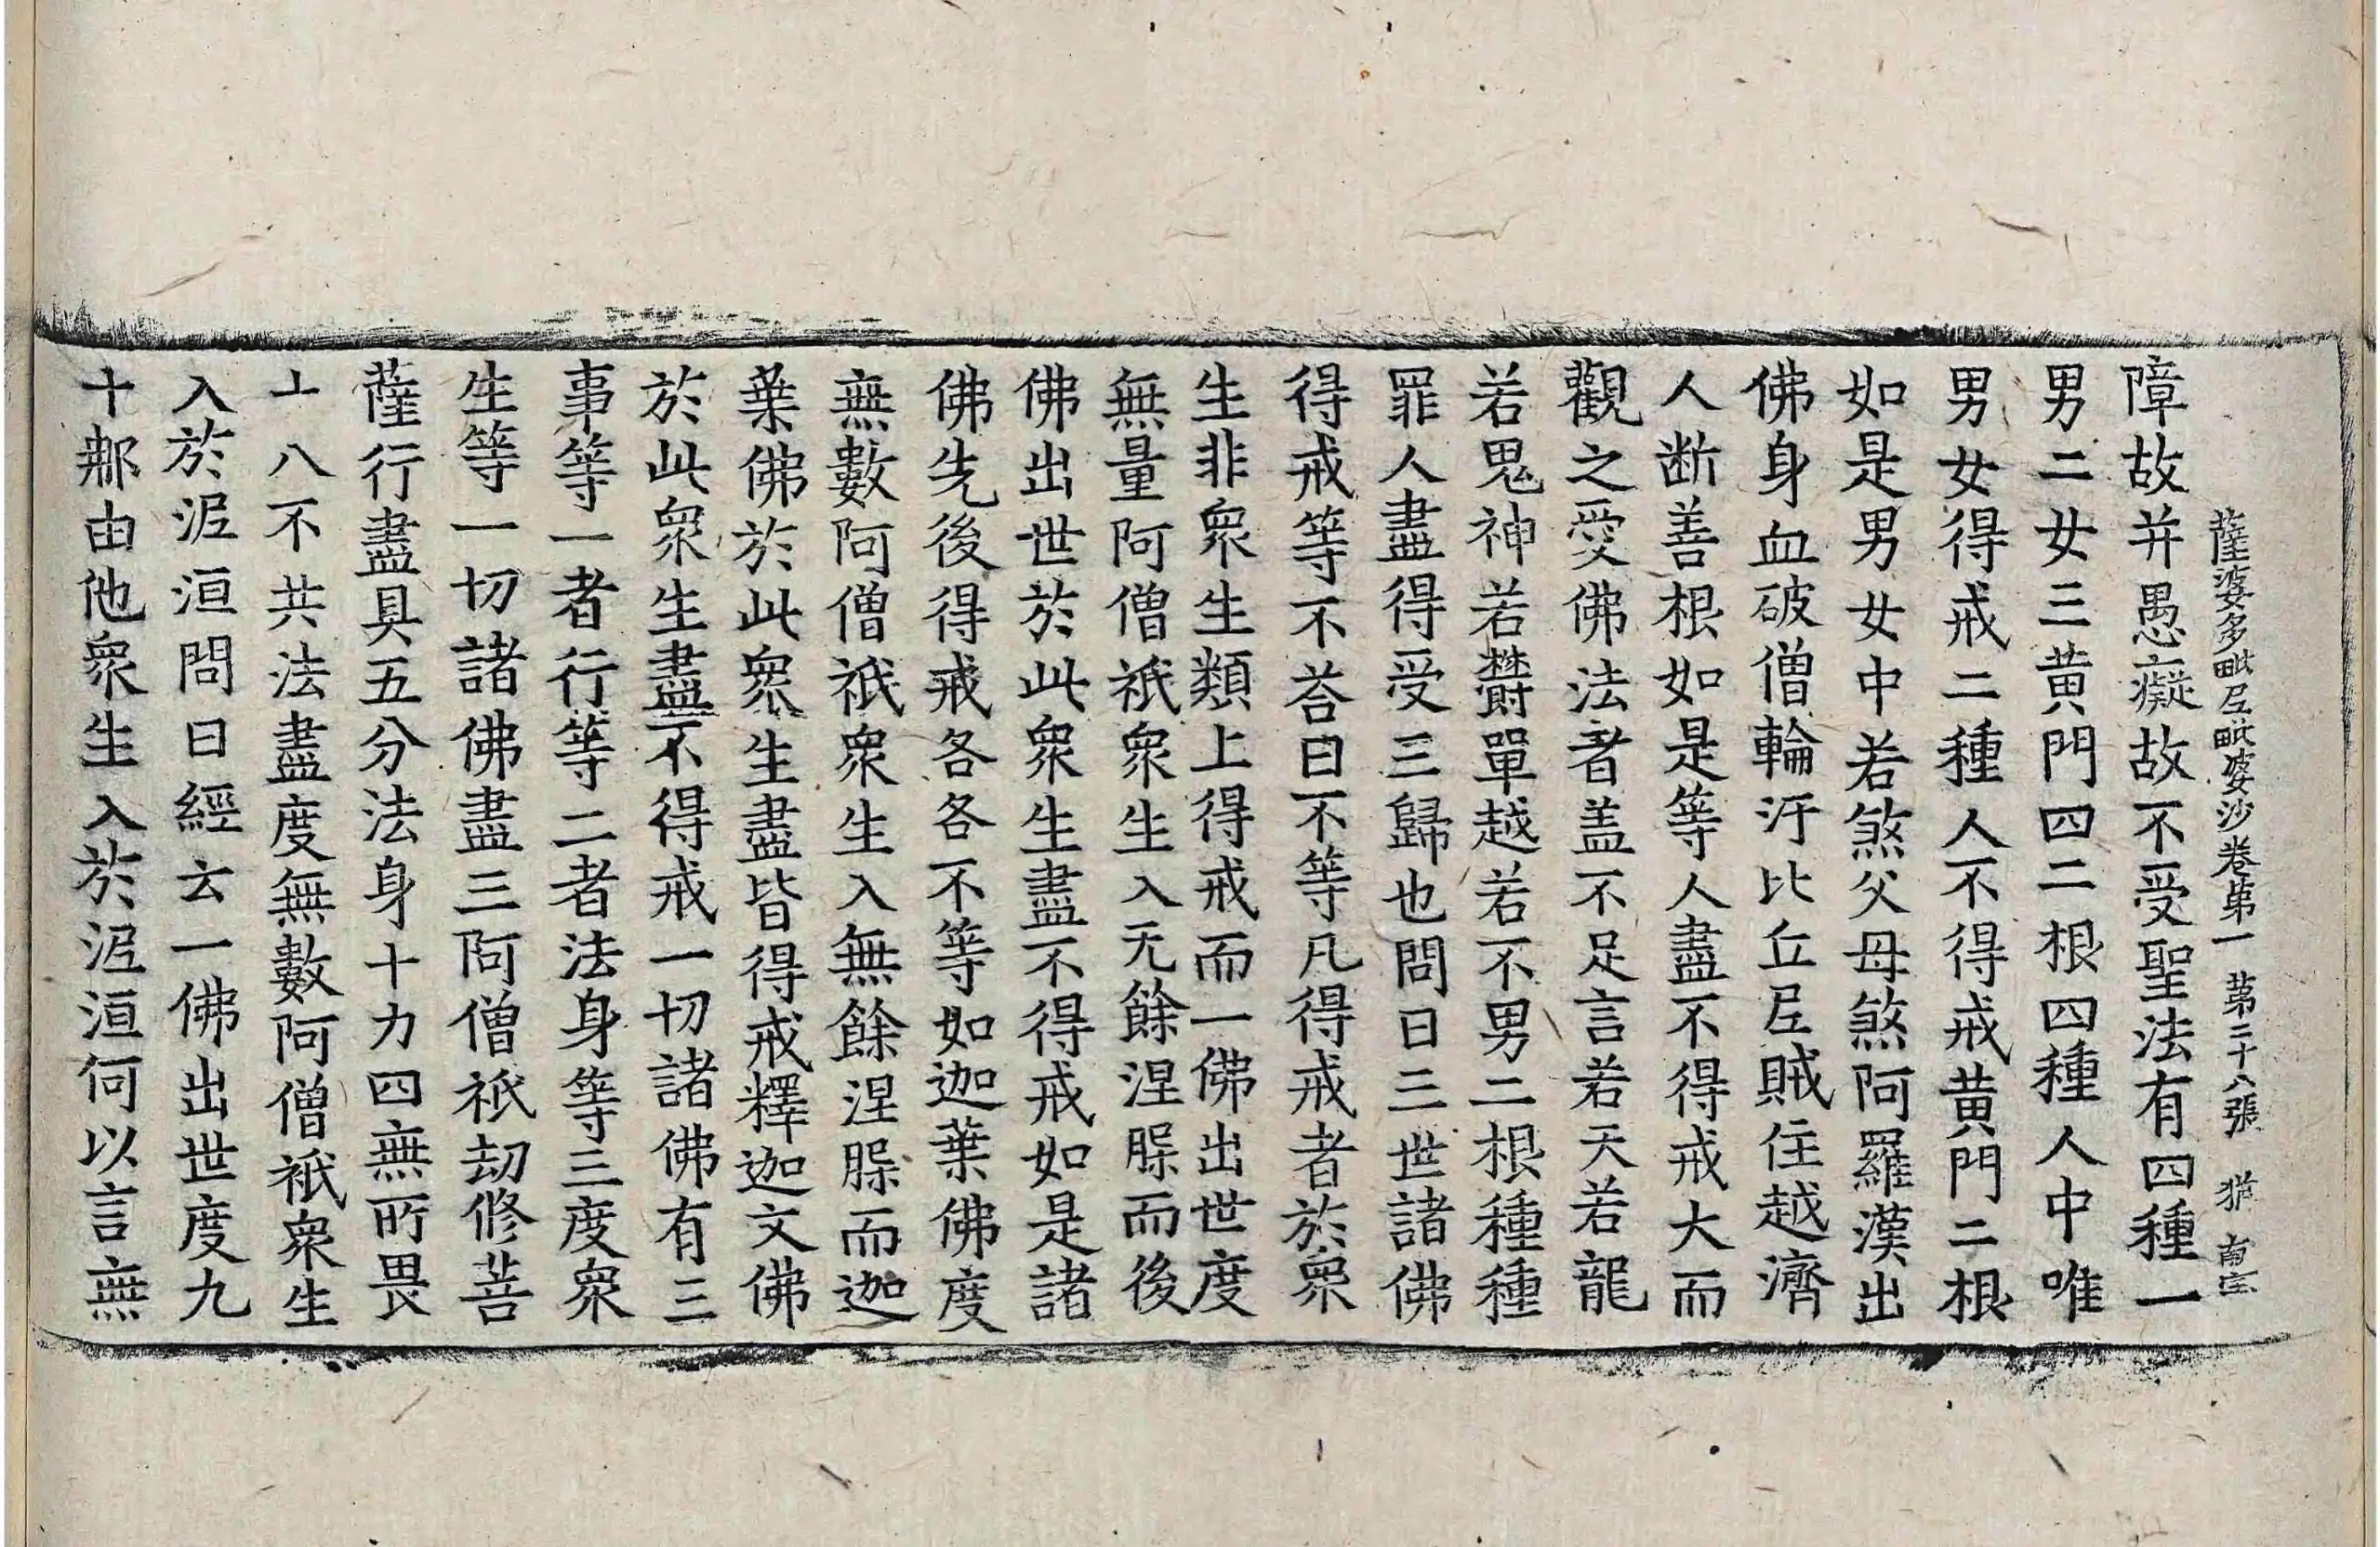 薩婆多毗尼毗婆沙卷第一 第二十八張 猶
障故并愚癡故不受聖法有四種一
男二女三黃門四二根四種人中唯
男女得戒二種人不得戒黃門二根
如是男女中若煞父母煞阿羅漢出
佛身血破僧輪汙比丘尼賊住越濟
人断善根如是等人盡不得戒大而
觀之受佛法者盖不足言若天若龍
若鬼神若欝單越若不男二根種種
罪人盡得受三歸也問曰三世諸佛
得戒等不荅曰不等凡得戒者於衆
生非衆生類上得戒而一佛出世度
無量阿僧祇衆生入无餘涅槃而後
佛出世於此衆生盡不得戒如是諸
佛先後得戒各各不等如迦葉佛度
無數阿僧祇衆生入無餘涅槃而迦
葉佛於此衆生盡皆得戒釋迦文佛
於此衆生盡不得戒一切諸佛有三
事等一者行等二者法身等三度衆
生等一切諸佛盡三阿僧祇劫修菩
薩行盡具五分法身十力四無所畏
十八不共法盡度無數阿僧祇衆生
入於泥洹問曰經云一佛出世度九
十那由他衆生入於泥洹何以言無